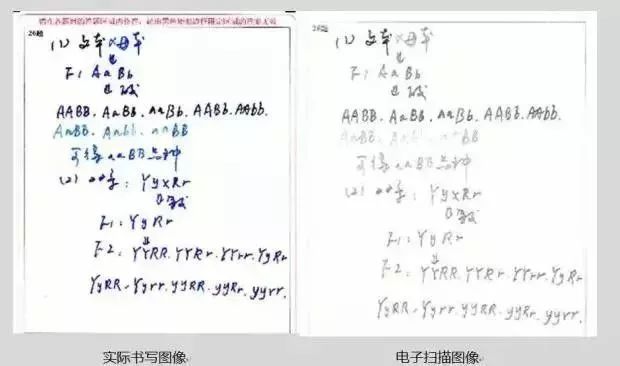 请在各题目的答题区域内作答，超出黑色矩形边框限定区域的答案无效
26题
(1) 父本×母本
↓
F1 AaBb
↓
AABB. AaBB. aaBb. AABb. AAbb.
AaBb. Aabb. aaBB
可得 aaBB
(2) YyxRr
F1: YyRr
↓
F2: YYRR. YYRr. YYrr. YyRr
YyRR. Yyrr. yyRR. yyRr. yyrr.
实际书写图像
26题
(1) 父本×母本
↓
F1 AaBb
↓
AABB. AaBB. aaBb. AABb. AAbb.
AaBb. Aabb. aaBB
可得 aaBB
(2) YyxRr
F1: YyRr
↓
F2: YYRR. YYRr. YYrr. YyRr
YyRR. Yyrr. yyRR. yyRr. yyrr.
电子扫描图像